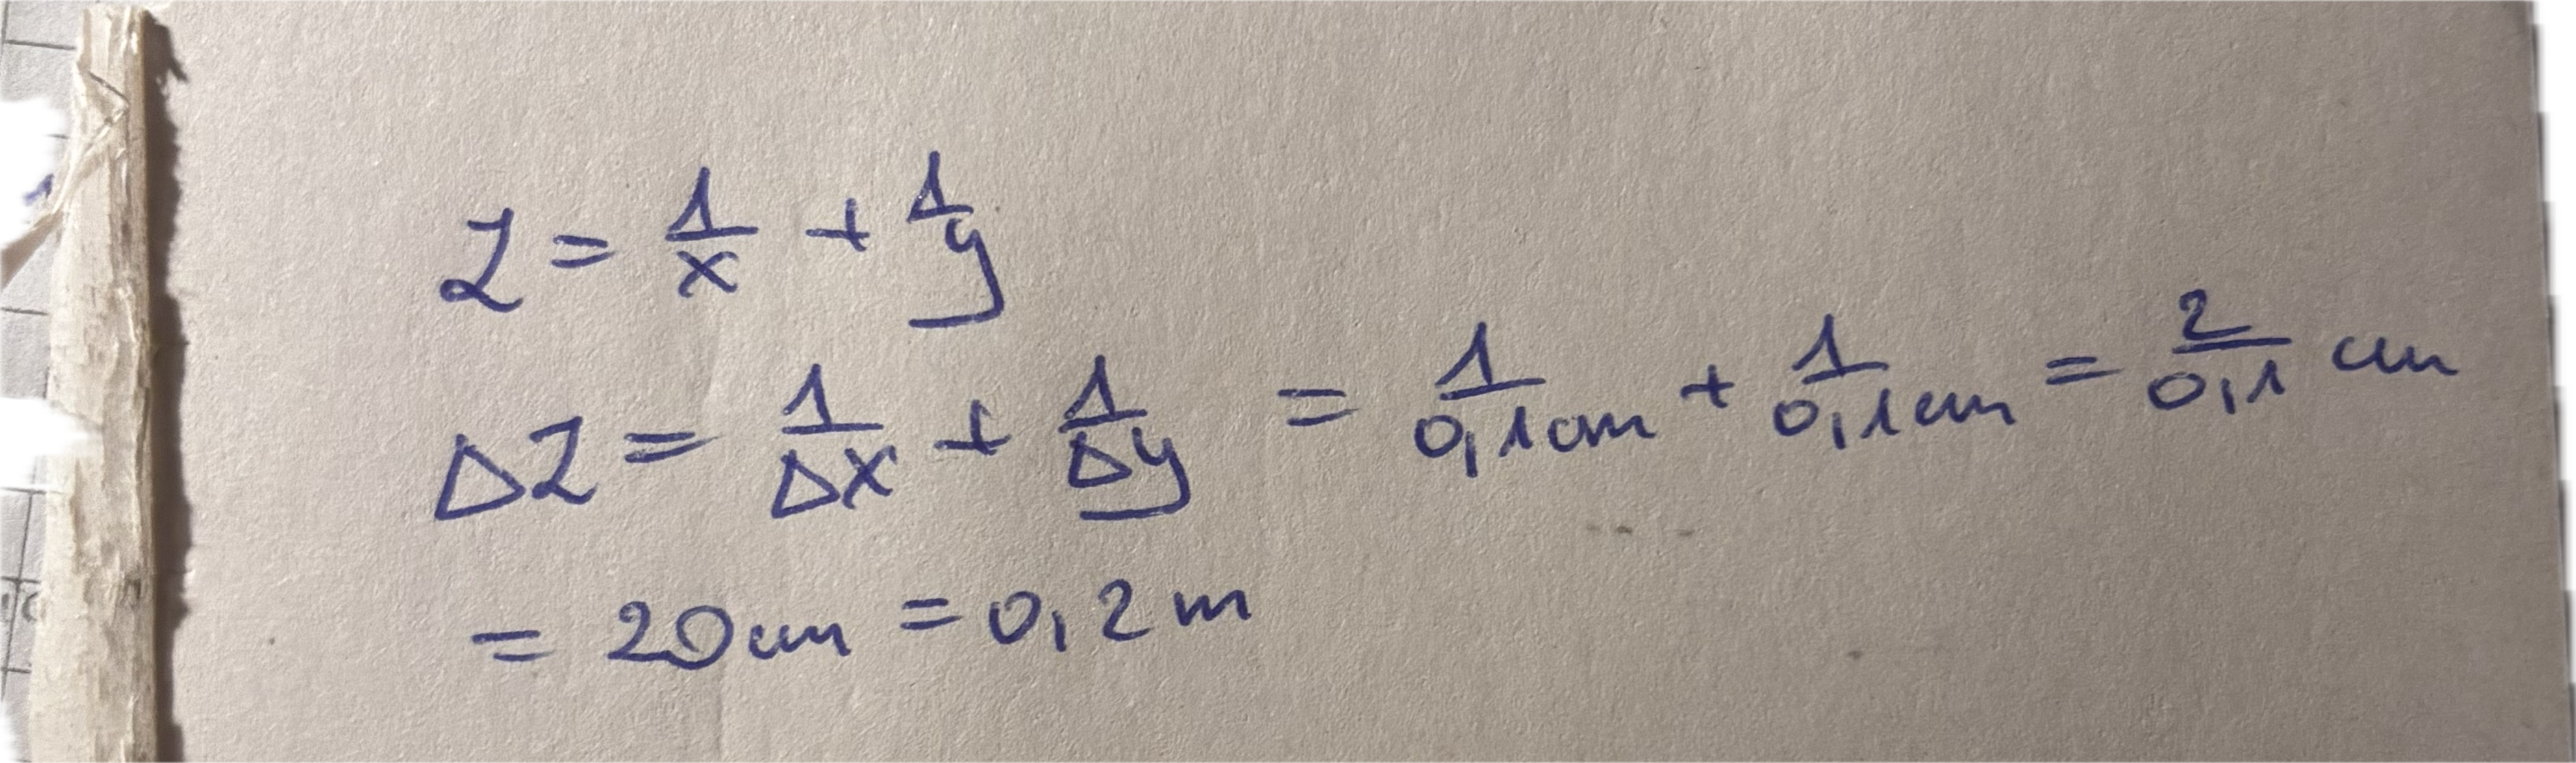 Z = 1/x + 1/y
ΔZ = 1/Δx + 1/Δy = 1/0,1cm + 1/0,1cm = 2/0,1 cm
= 20cm = 0,2 m